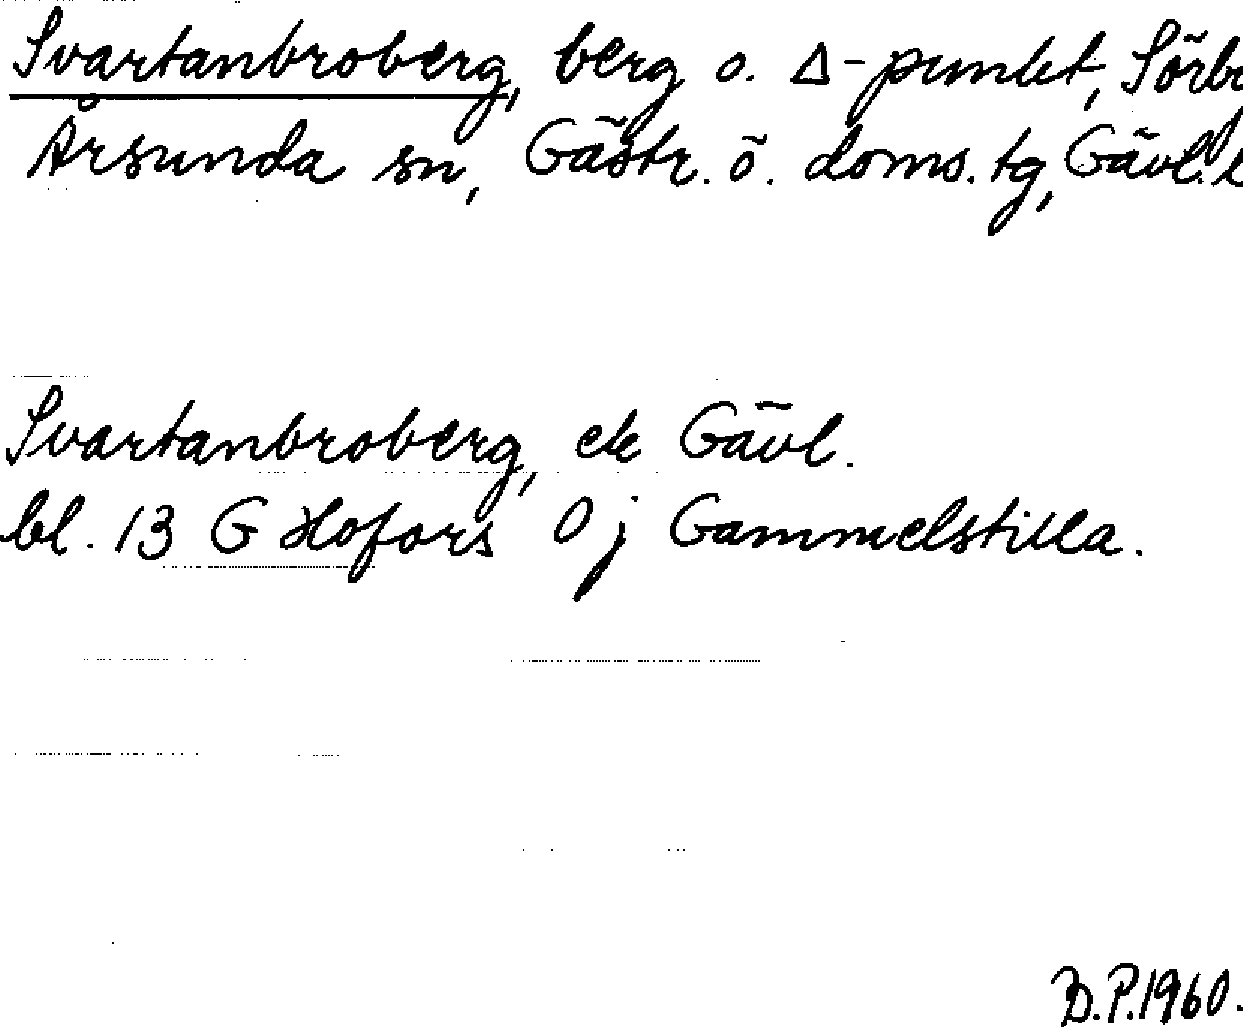 Svartanbroberg, berg o. Δ-punkt,
Årsunda sn, Gästr. ö. doms. tg, Gävl.
Svartanbroberg, ek Gävl.
bl. 13 G Hofors 0 j Gammelstilla.
B.P. 1960.